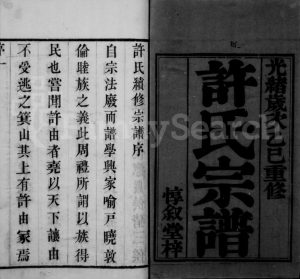 光緒歲次乙巳重修
許氏宗譜
惇叙堂梓
許氏續修宗譜序
自宗法廢而譜學興家喻戶曉敦
倫睦族之義此周禮所謂以族得
民也嘗聞許由者堯以天下讓由
不受逃之箕山其上有許由冢焉
序一